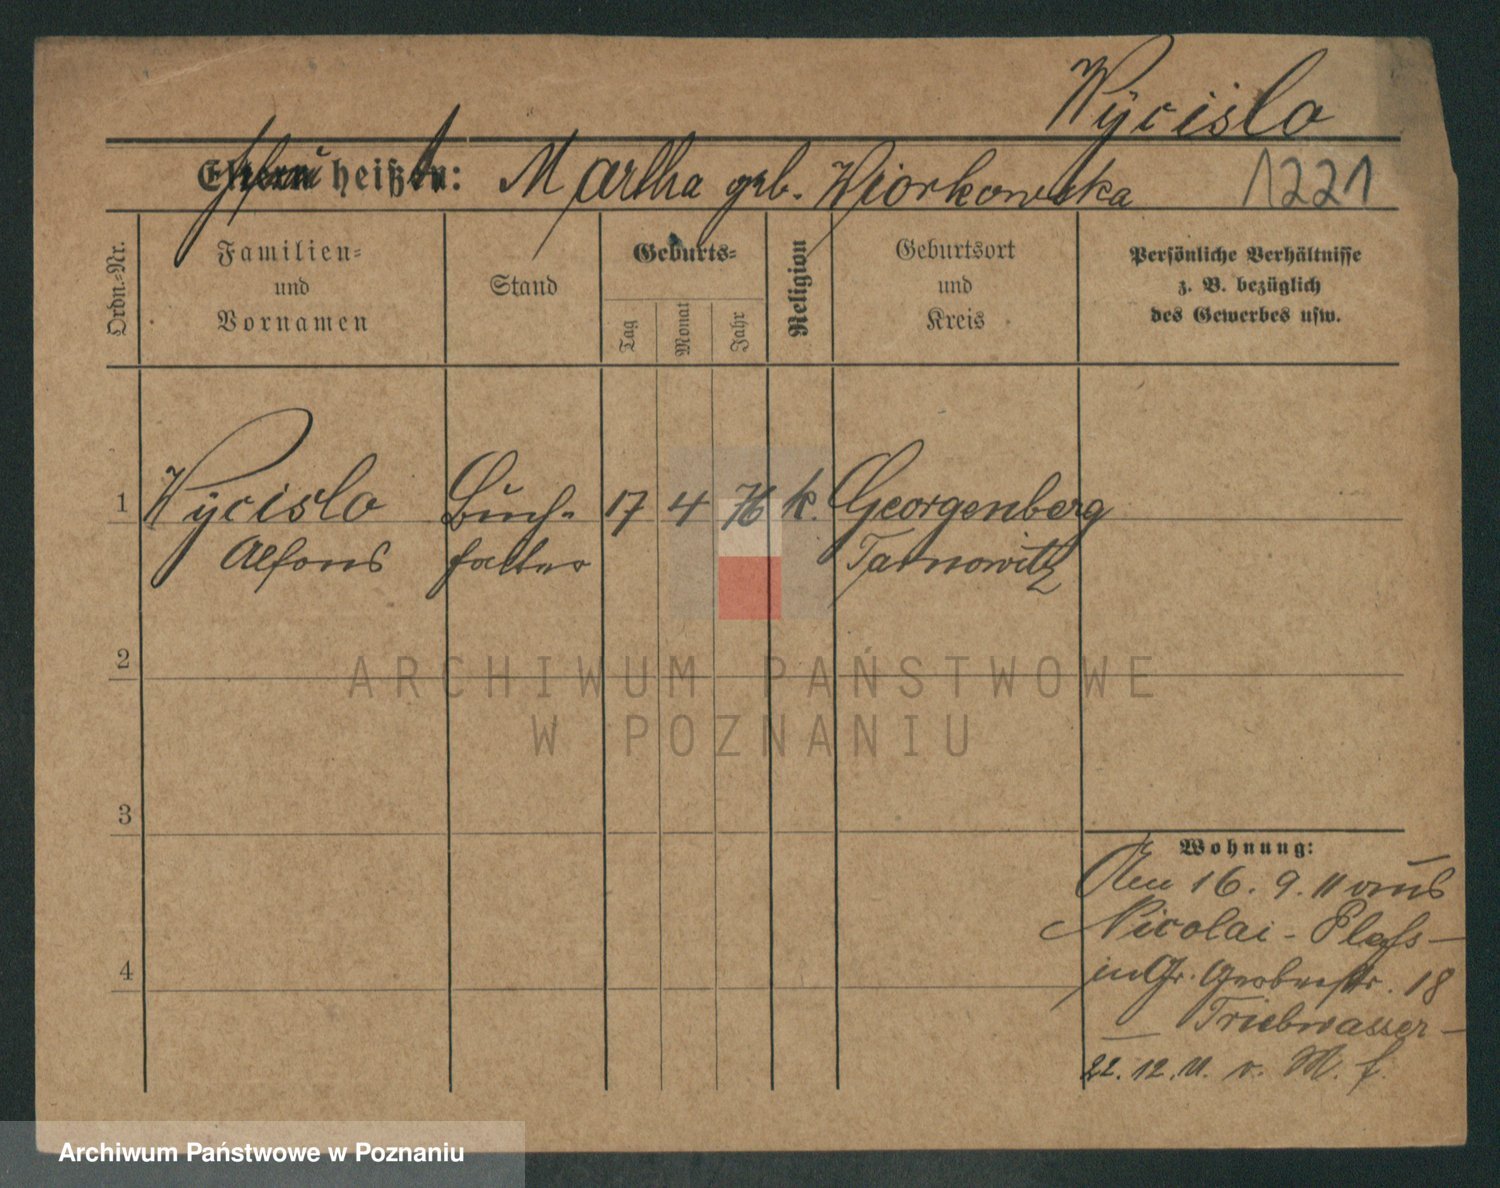 Wÿcislo
Ehefrau heißt: Martha geb. Wiorkowska 1221
Ordn.-Nr.
Familien-
und
Vornamen
Stand
Geburts-
Tag
Monat
Jahr
Religion
Geburtsort
und
Kreis
Persönliche Verhältnisse
z. B. bezüglich
des Gewerbes usw.
1 Wÿcislo Buch- 17 4 76 k. Georgenberg
Alfons halter Tarnowitz
2
3
4
Wohnung:
Am 16. 9. 11 aus
Nicolai-
in Gr. Gerberstr. 18
Triebwasser
22. 12. 11. v. M. f.
ARCHIWUM PAŃSTWOWE
W POZNANIU
Archiwum Państwowe w Poznaniu